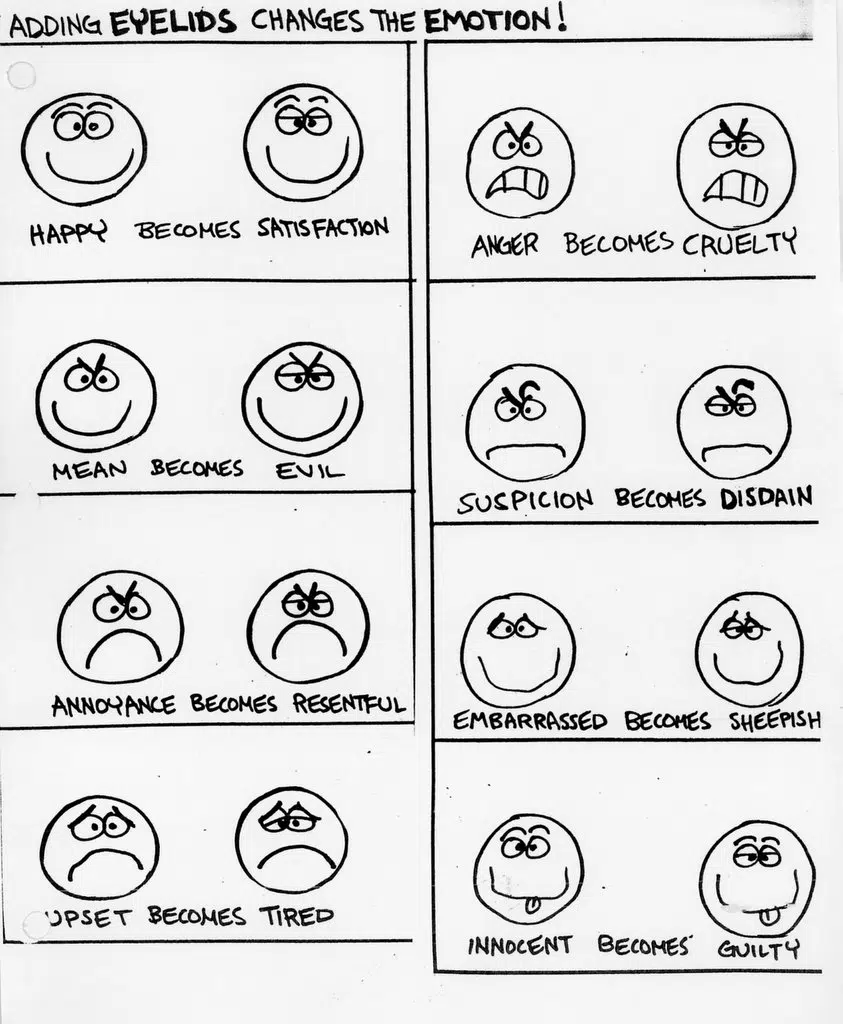 ADDING EYELIDS CHANGES THE EMOTION!
HAPPY BECOMES SATISFACTION
MEAN BECOMES EVIL
ANNOYANCE BECOMES RESENTFUL
UPSET BECOMES TIRED
ANGER BECOMES CRUELTY
SUSPICION BECOMES DISDAIN
EMBARRASSED BECOMES SHEEPISH
INNOCENT BECOMES GUILTY